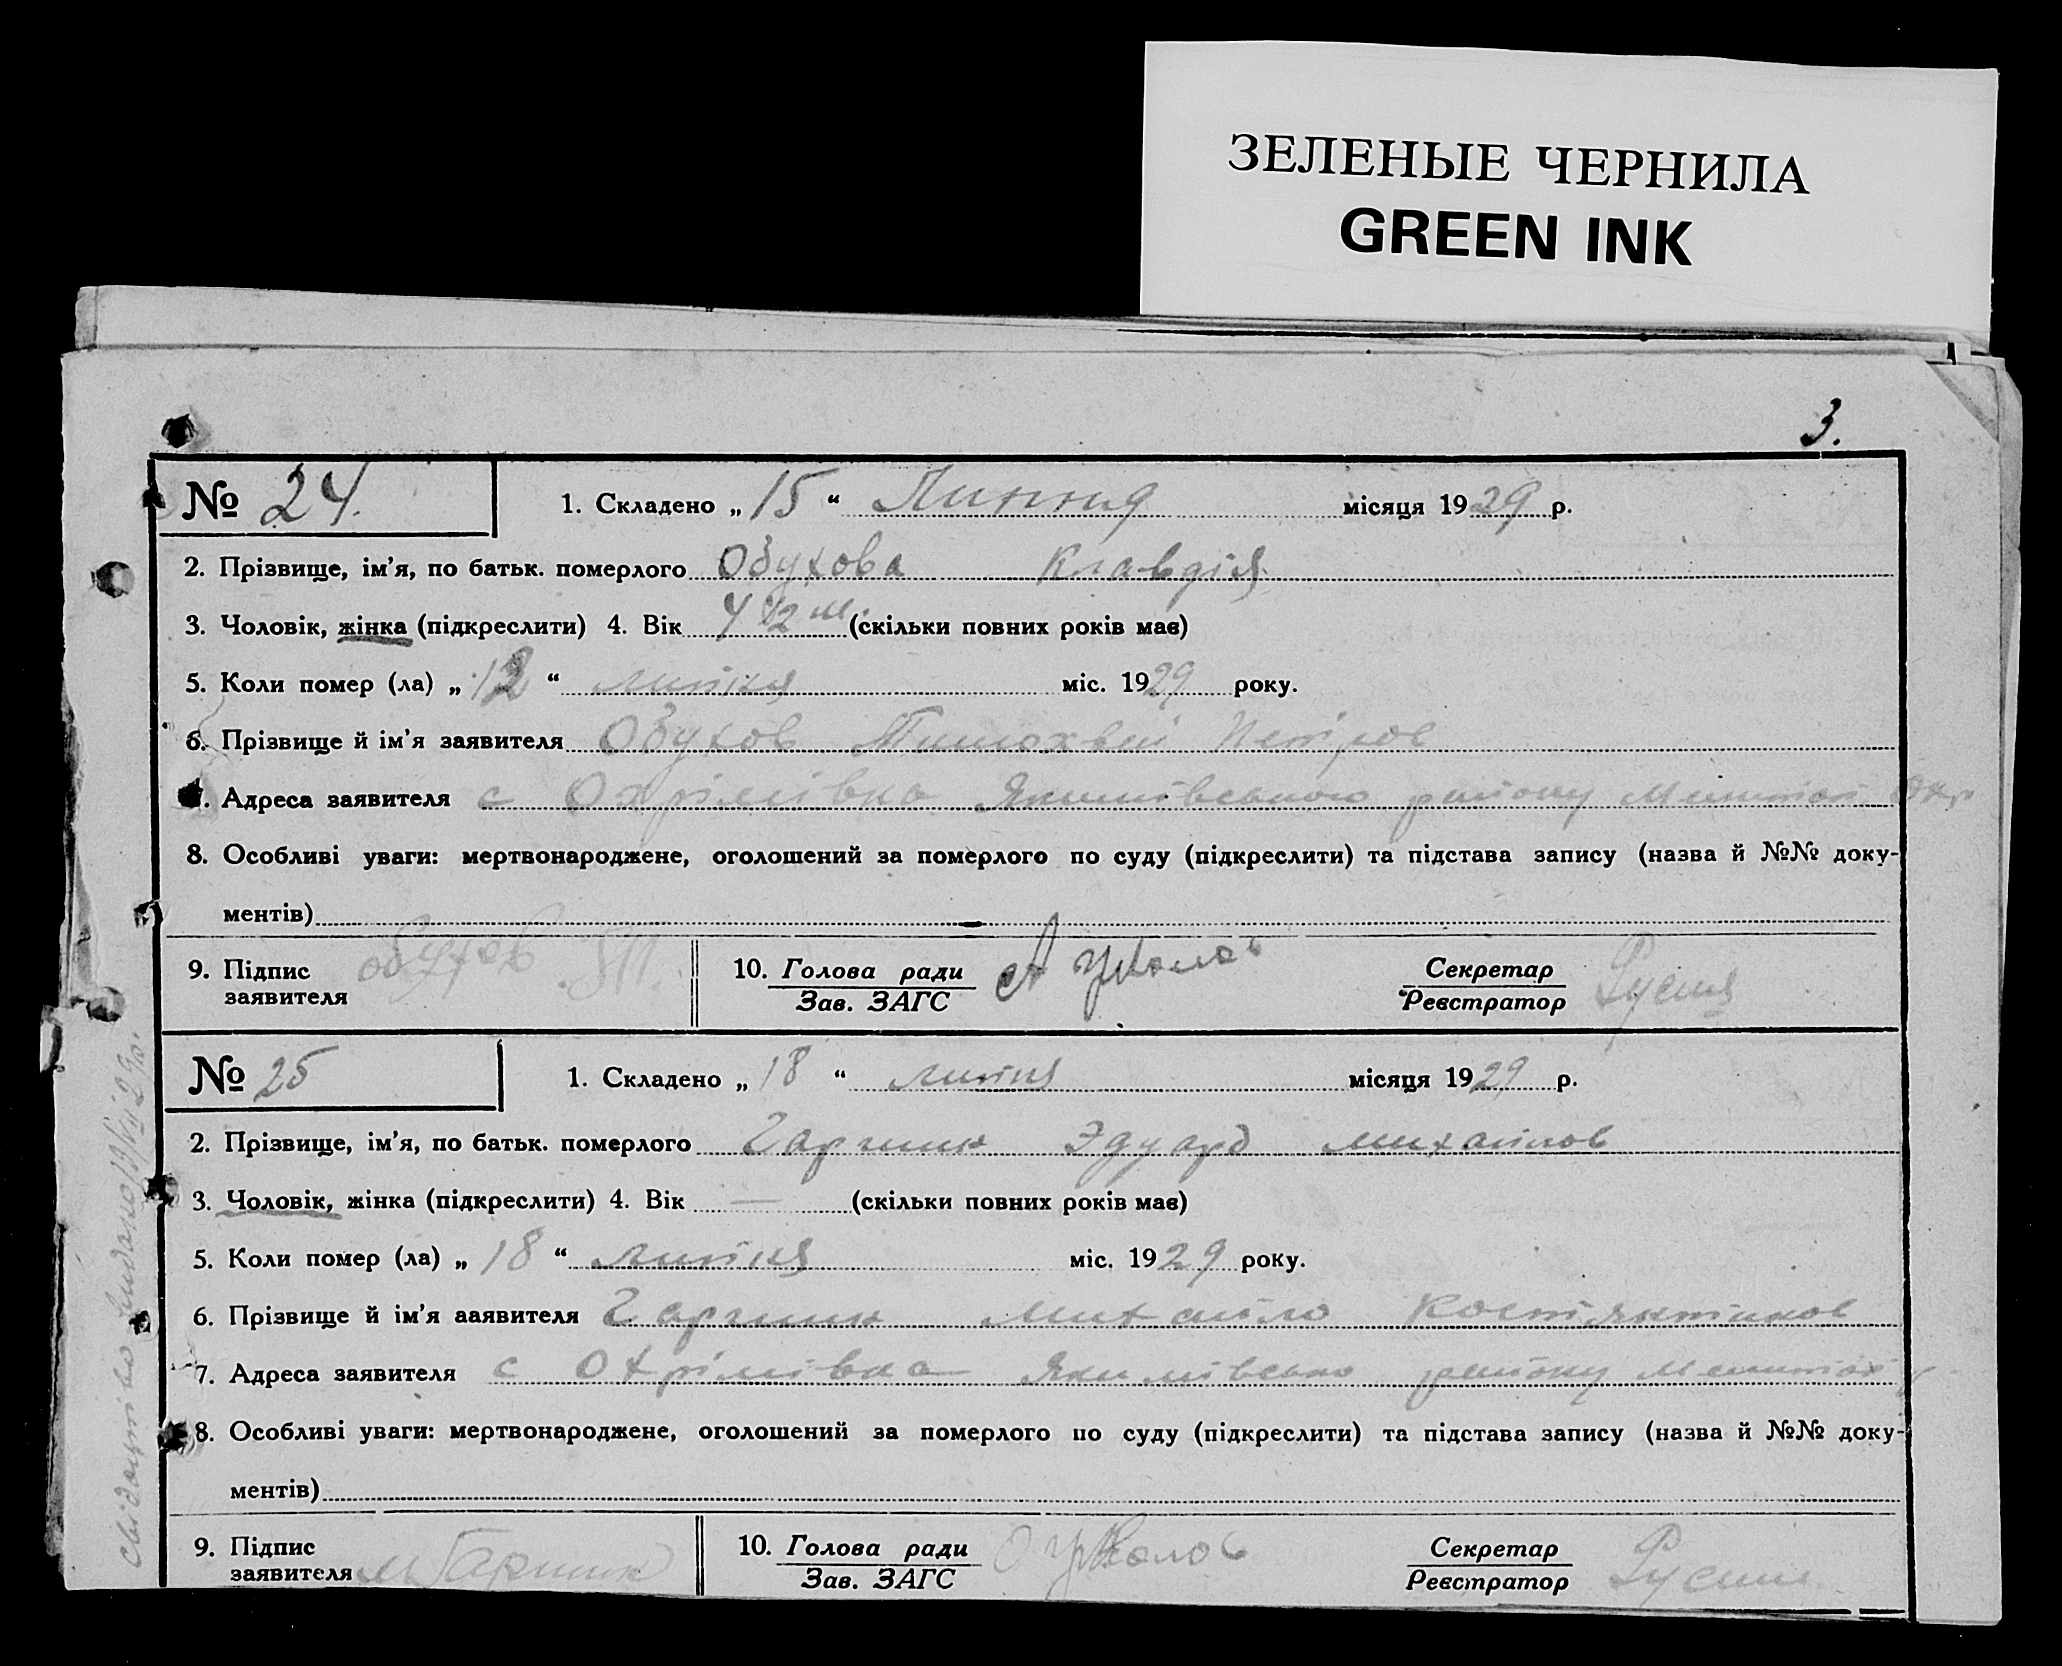 ЗЕЛЕНЫЕ ЧЕРНИЛА
GREEN INK
3.
№ 24. 1. Складено „ 15 “ Липня місяця 1929 р.
2. Прізвище, ім’я, по батьк. померлого Обухова Клавдія
3. Чоловік, жінка (підкреслити) 4. Вік (скільки повних років має)
5. Коли помер (ла) „ 12 “ липня міс. 1929 року.
6. Прізвище й ім’я заявителя Обухов Тимохвей Петров
7. Адреса заявителя с Охрімівка Якимівського району Мелітоп Окр
8. Особливі уваги: мертвонароджене, оголошений за померлого по суду (підкреслити) та підстава запису (назва й №№ доку-
ментів)
9. Підпис заявителя Обухов Т. 10. Голова ради Зав. ЗАГС Секретар Реєстратор
№ 25 1. Складено „ 18 “ липня місяця 1929 р.
2. Прізвище, ім’я, по батьк. померлого Гаршин Эдуард Михайлов
3. Чоловік, жінка (підкреслити) 4. Вік — (скільки повних років має)
5. Коли помер (ла) „ 18 “ липня міс. 1929 року.
6. Прізвище й ім’я ааявителя Гаршин Михайло Костянтинов
7. Адреса заявителя с Охрімівка Якимівсько району Мелітоп
8. Особливі уваги: мертвонароджене, оголошений за померлого по суду (підкреслити) та підстава запису (назва й №№ доку-
ментів)
9. Підпис заявителя М Гаршин 10. Голова ради Зав. ЗАГС Секретар Реєстратор